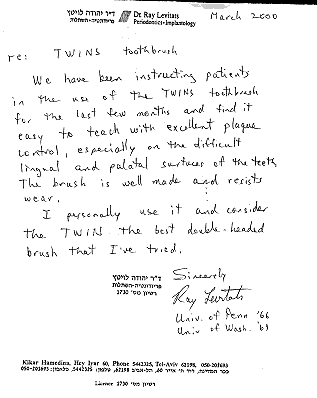 ד"ר יהודה לויטץ
פריודונטיה-השתלות
Dr Ray Levitats
Periodontics-Implantology
March 2000
re: TWINS toothbrush
We have been instructing patients
in the use of the TWINS toothbrush
for the last few months and find it
easy to teach with excellent plaque
control, especially on the difficult
lingual and palatal surfaces of the teeth.
The brush is well made and resists
wear.
I personally use it and consider
the TWIN the best double-headed
brush that I've tried.
ד"ר יהודה לויטץ
פריודונטיה-השתלות
רשיון מס' 1730
Sincerely
Ray Levitats
Univ. of Penn '66
Univ of Wash. '69
Kikar Hamedina, Hey Iyar 60, Phone 5442325, Tel-Aviv 62198, 050-201693
ככר המדינה, ה' אייר 60, תל-אביב 62198, טלפון: 5442325, פלאפון: 050-201693
Licence 1730 רשיון מס'